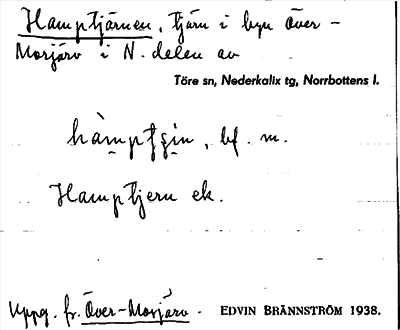 Hamptjärnen, tjärn i byn Över-
Morjärv i N. delen av
Töre sn, Nederkalix tg, Norrbottens l.
bf. m.
Hamptjern ek.
Uppg. fr. Över-Morjärv. EDVIN BRÄNNSTRÖM 1938.